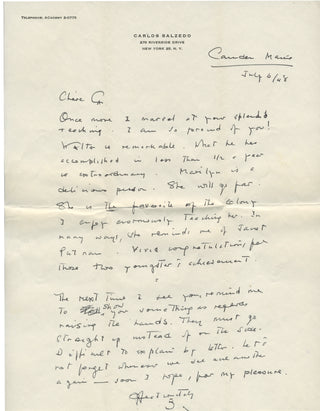 TELEPHONE: ACADEMY 2-0774
CARLOS SALZEDO
270 RIVERSIDE DRIVE
NEW YORK 25, N. Y.
Camden Maine
July 6/48
Chère
Once more I marvel at your splendid
teaching. I am so proud of you!
is remarkable. What he has
accomplished in less than 1/2 a year
is extraordinary. Marilyn is a
delicious person. She will go far.
She is the of the colony
I enjoy enormously teaching her. In
many ways, she reminds me of Janet
Putnam. Vivid congratulations for
those two youngster's achievement.
The next time I see you, remind me
to show you something as regards
raising the hands. They must go
straight up instead of on the side.
Difficult to explain by letter. Let's
not forget whenever we see one another
again — soon I hope, for my pleasure.
Affectionately
S